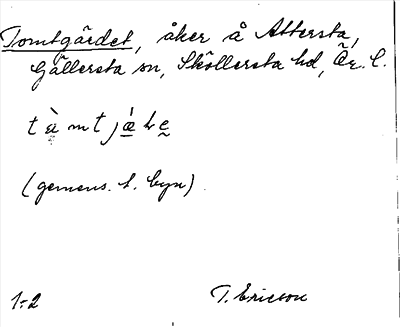 Tomtgärdet, åker å Attersta,
Gällersta sn, Sköllersta hd, Ör. l.
(gemens. t. byn)
1:2 T. Ericson